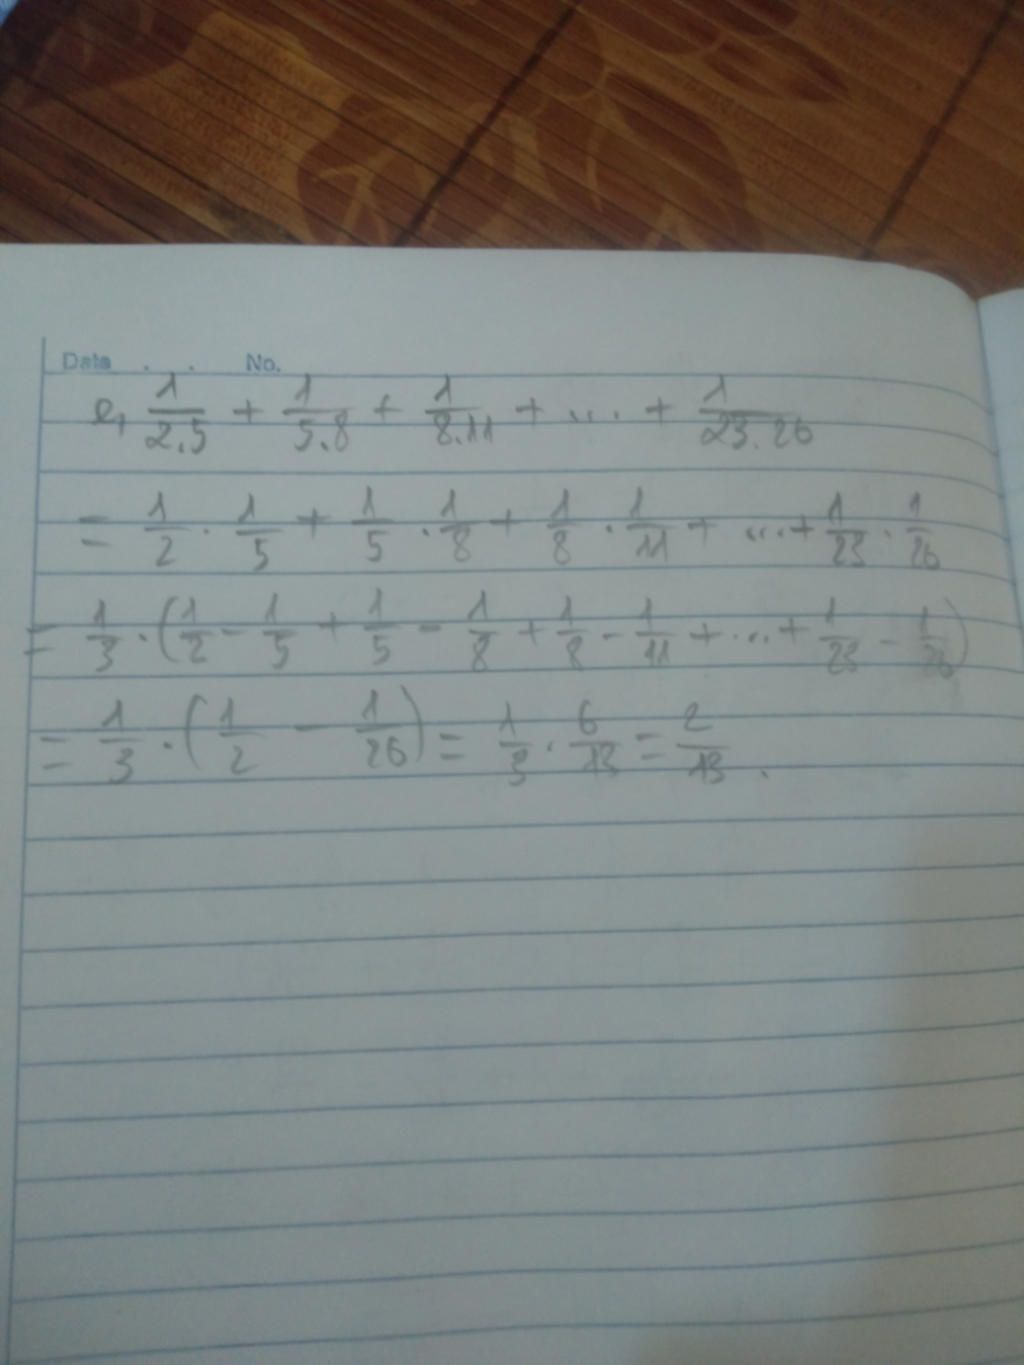 Date . . No.
e, 1/2.5 + 1/5.8 + 1/8.11 + ... + 1/23.26
= 1/2 . 1/5 + 1/5 . 1/8 + 1/8 . 1/11 + ... + 1/23 . 1/26
= 1/3 . (1/2 - 1/5 + 1/5 - 1/8 + 1/8 - 1/11 + ... + 1/23 - 1/26)
= 1/3 . (1/2 - 1/26) = 1/3 . 6/13 = 2/13 .